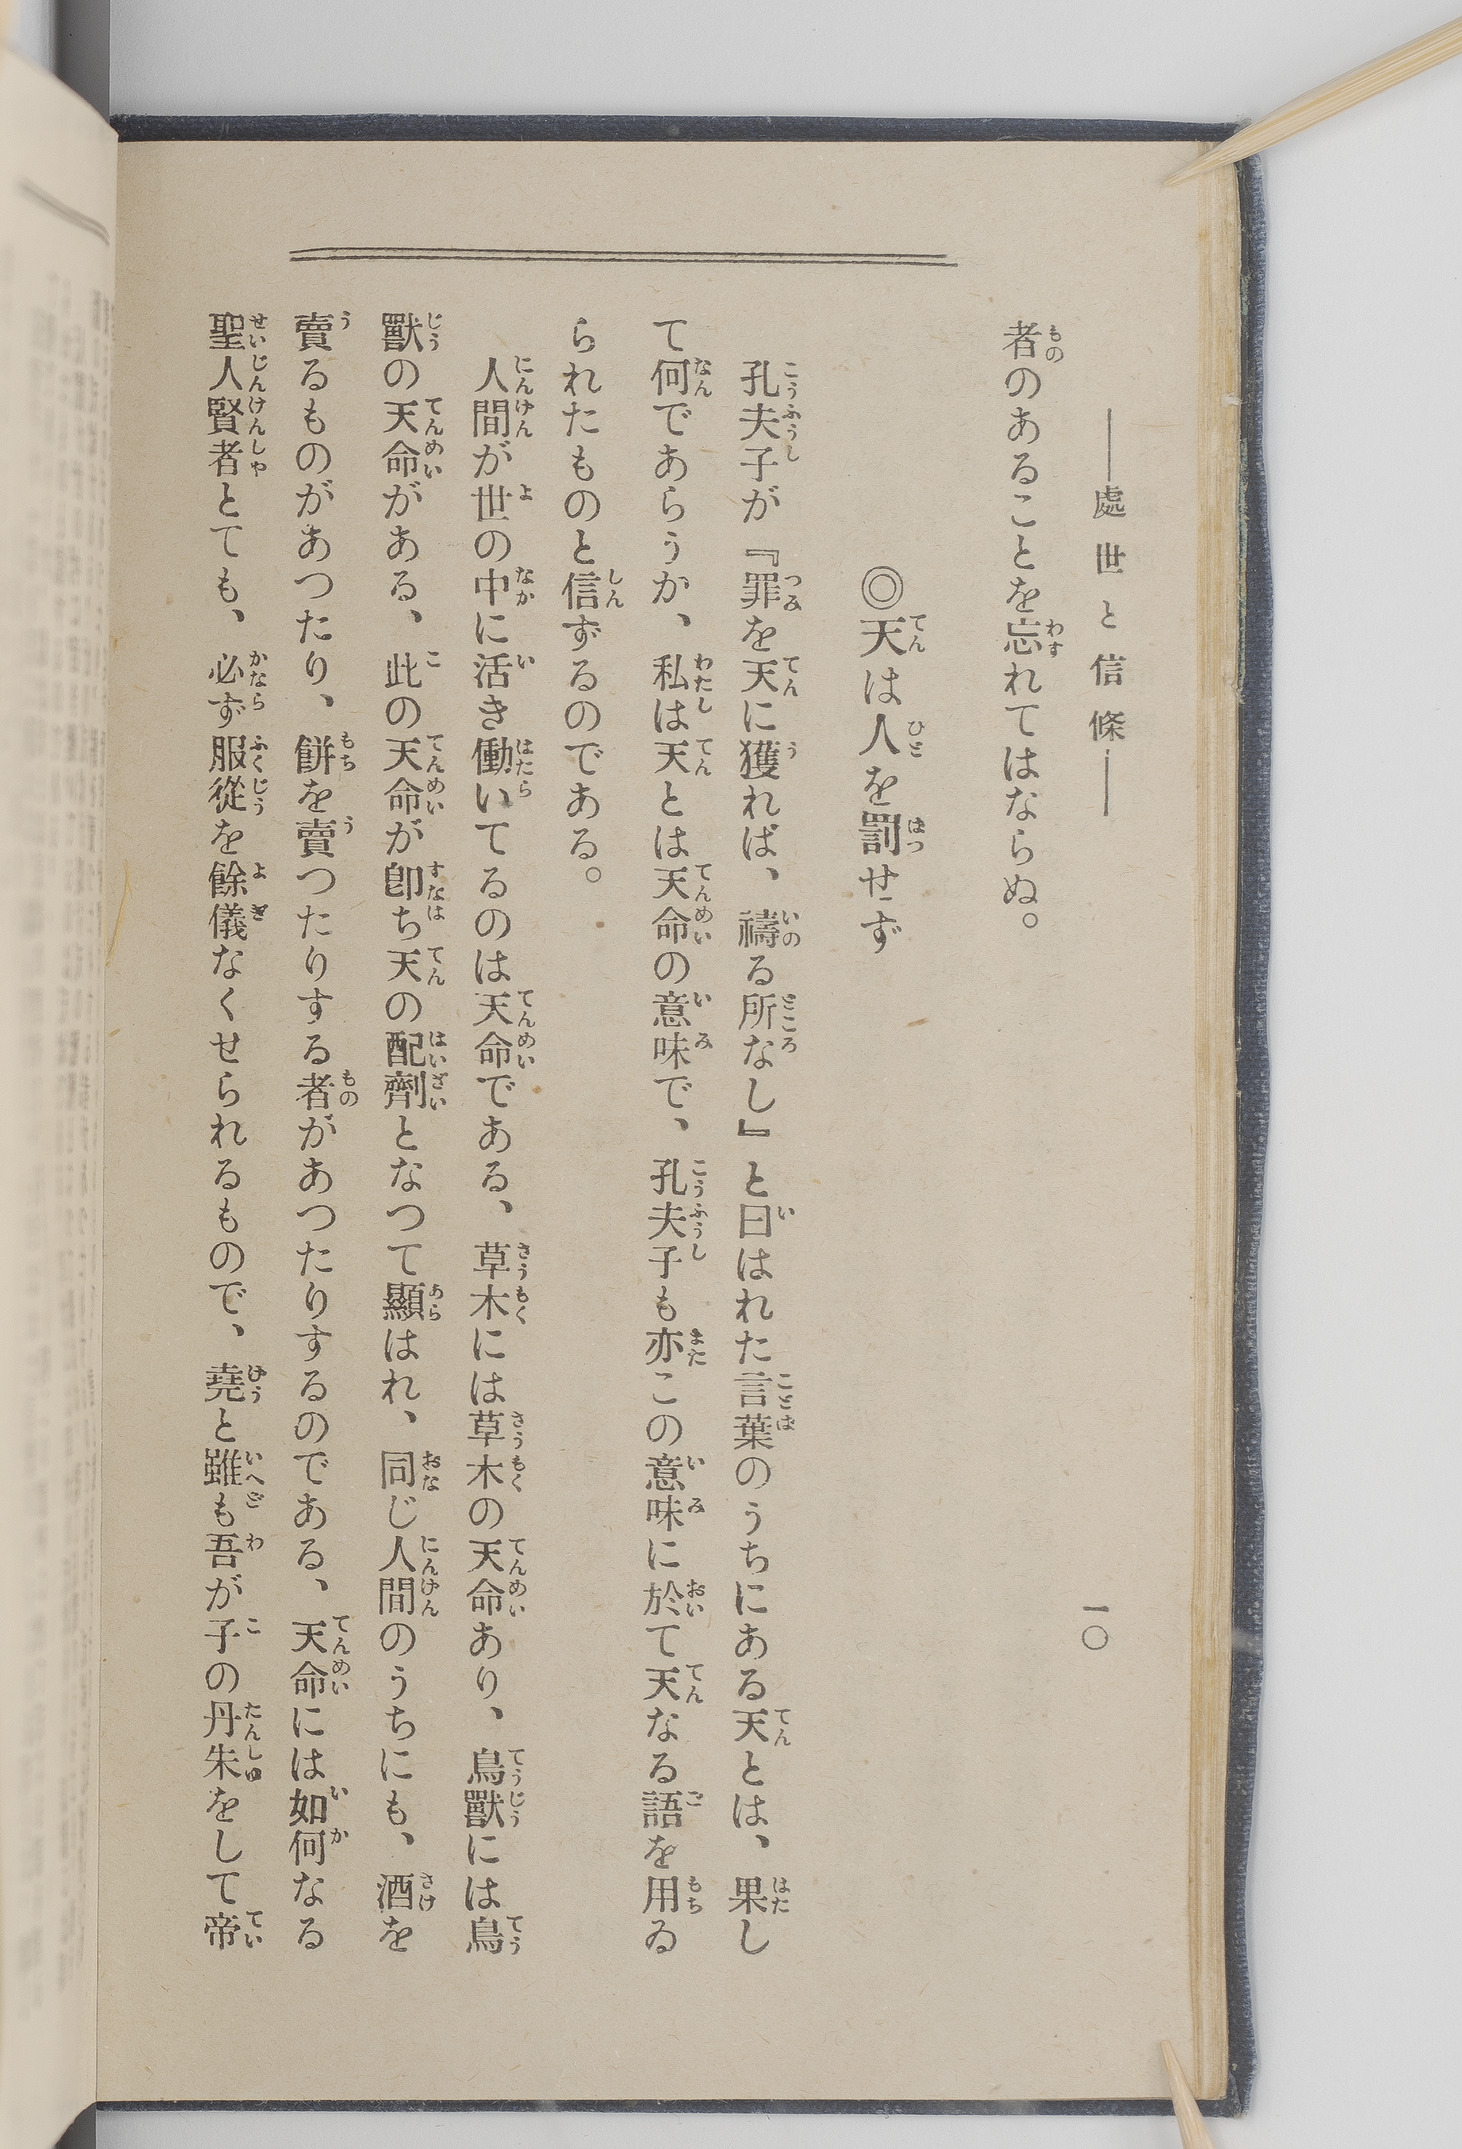 ――處世と信條――
一〇
者のあることを忘れてはならぬ。
◎天は人を罰せず
孔夫子が『罪を天に獲れば、禱る所なし』と曰はれた言葉のうちにある天とは、果し
て何であらうか、私は天とは天命の意味で、孔夫子も亦この意味に於て天なる語を用ゐ
られたものと信ずるのである。
人間が世の中に活き働いてるのは天命である、草木には草木の天命あり、鳥獸には鳥
獸の天命がある、此の天命が卽ち天の配劑となつて顯はれ、同じ人間のうちにも、酒を
賣るものがあつたり、餠を賣つたりする者があつたりするのである、天命には如何なる
聖人賢者とても、必ず服從を餘儀なくせられるもので、堯と雖も吾が子の丹朱をして帝